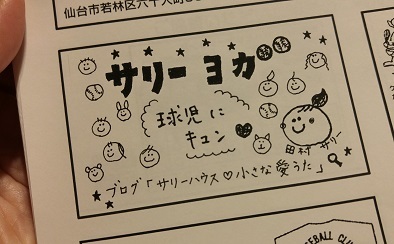 仙台市若林区六十人町
サリーヨガ
球児に
キュン♥
田村サリー
ブログ「サリーハウス♡小さな愛うた」
BASEBALL CLUB